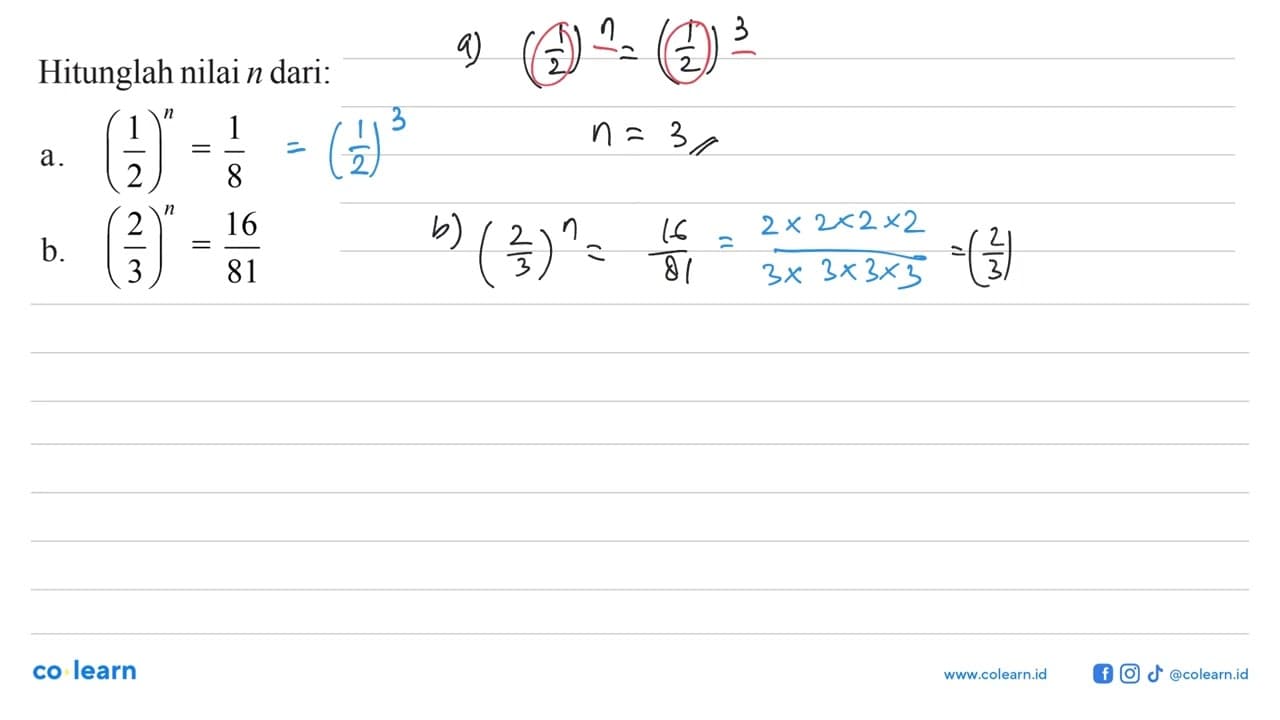 Hitunglah nilai n dari:
a. (1/2)^n = 1/8 = (1/2)^3
b. (2/3)^n = 16/81
a) (1/2)^n = (1/2)^3
n = 3
b) (2/3)^n = 16/81 = 2 × 2 × 2 × 2 / 3 × 3 × 3 × 3 = (2/3)
co learn
www.colearn.id
@colearn.id